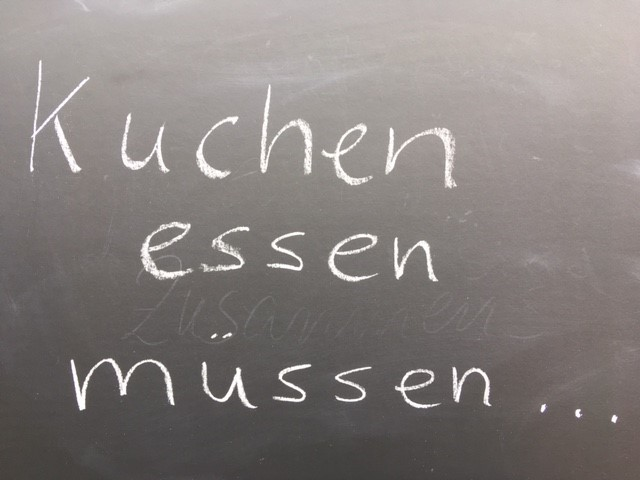 Kuchen
essen
Zusammen
müssen...